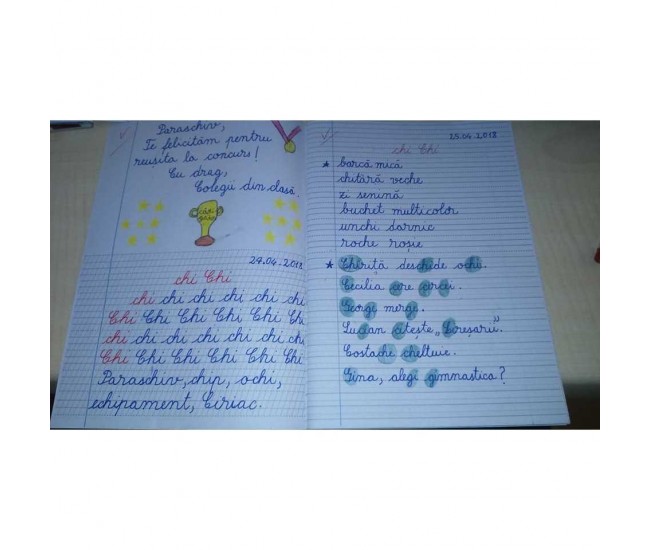 Paraschiv,
Te felicităm pentru
reușita la concurs!
Cu drag,
Colegii din clasă,
24.04.2018
chi Chi
chi chi chi chi chi chi chi
Chi Chi Chi Chi Chi Chi Chi
chi chi chi chi chi chi chi
Chi Chi Chi Chi Chi Chi Chi
Paraschiv, chip, ochi,
echipament, Ciriac.
25.04.2018
chi Chi
* barcă mică
chitară veche
zi senină
buchet multicolor
unchi darnic
roche roșie
* Chiriță deschide ochi.
Cecilia are cercei.
Georgi merge.
Lucian citește „Cireșarii”.
Costache cheltuie.
Gina, alegi gimnastica?